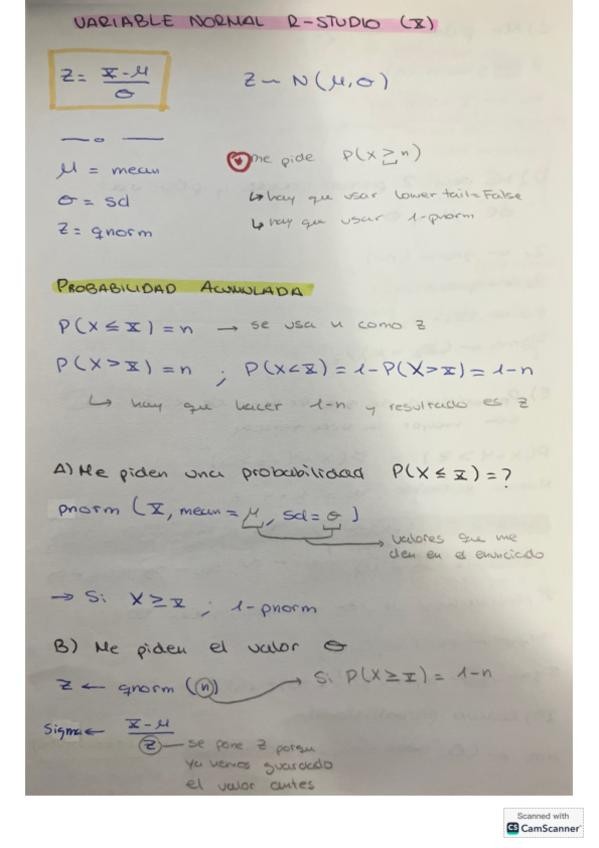 VARIABLE NORMAL R-STUDIO (X)
Z = X-μ / σ
Z ~ N(μ,σ)
μ = mean
σ = sd
Z = qnorm
me pide P(X ≥ n)
↳ hay que usar lower tail = False
↳ hay que usar 1-pnorm
PROBABILIDAD ACUMULADA
P(X ≤ X) = n → se usa n como z
P(X > X) = n ; P(X < X) = 1 - P(X > X) = 1 - n
↳ hay que hacer 1-n y resultado es z
A) Me piden una probabilidad P(X ≤ X) = ?
pnorm (X, mean = μ, sd = σ)
valores que me
den en el enunciado
→ Si X ≥ X ; 1-pnorm
B) Me piden el valor σ
Z ← qnorm (n) → Si P(X ≥ X) = 1-n
Sigma ← X-μ / Z
se pone Z porqu
ya hemos guardado
el valor antes
Scanned with
CS CamScanner